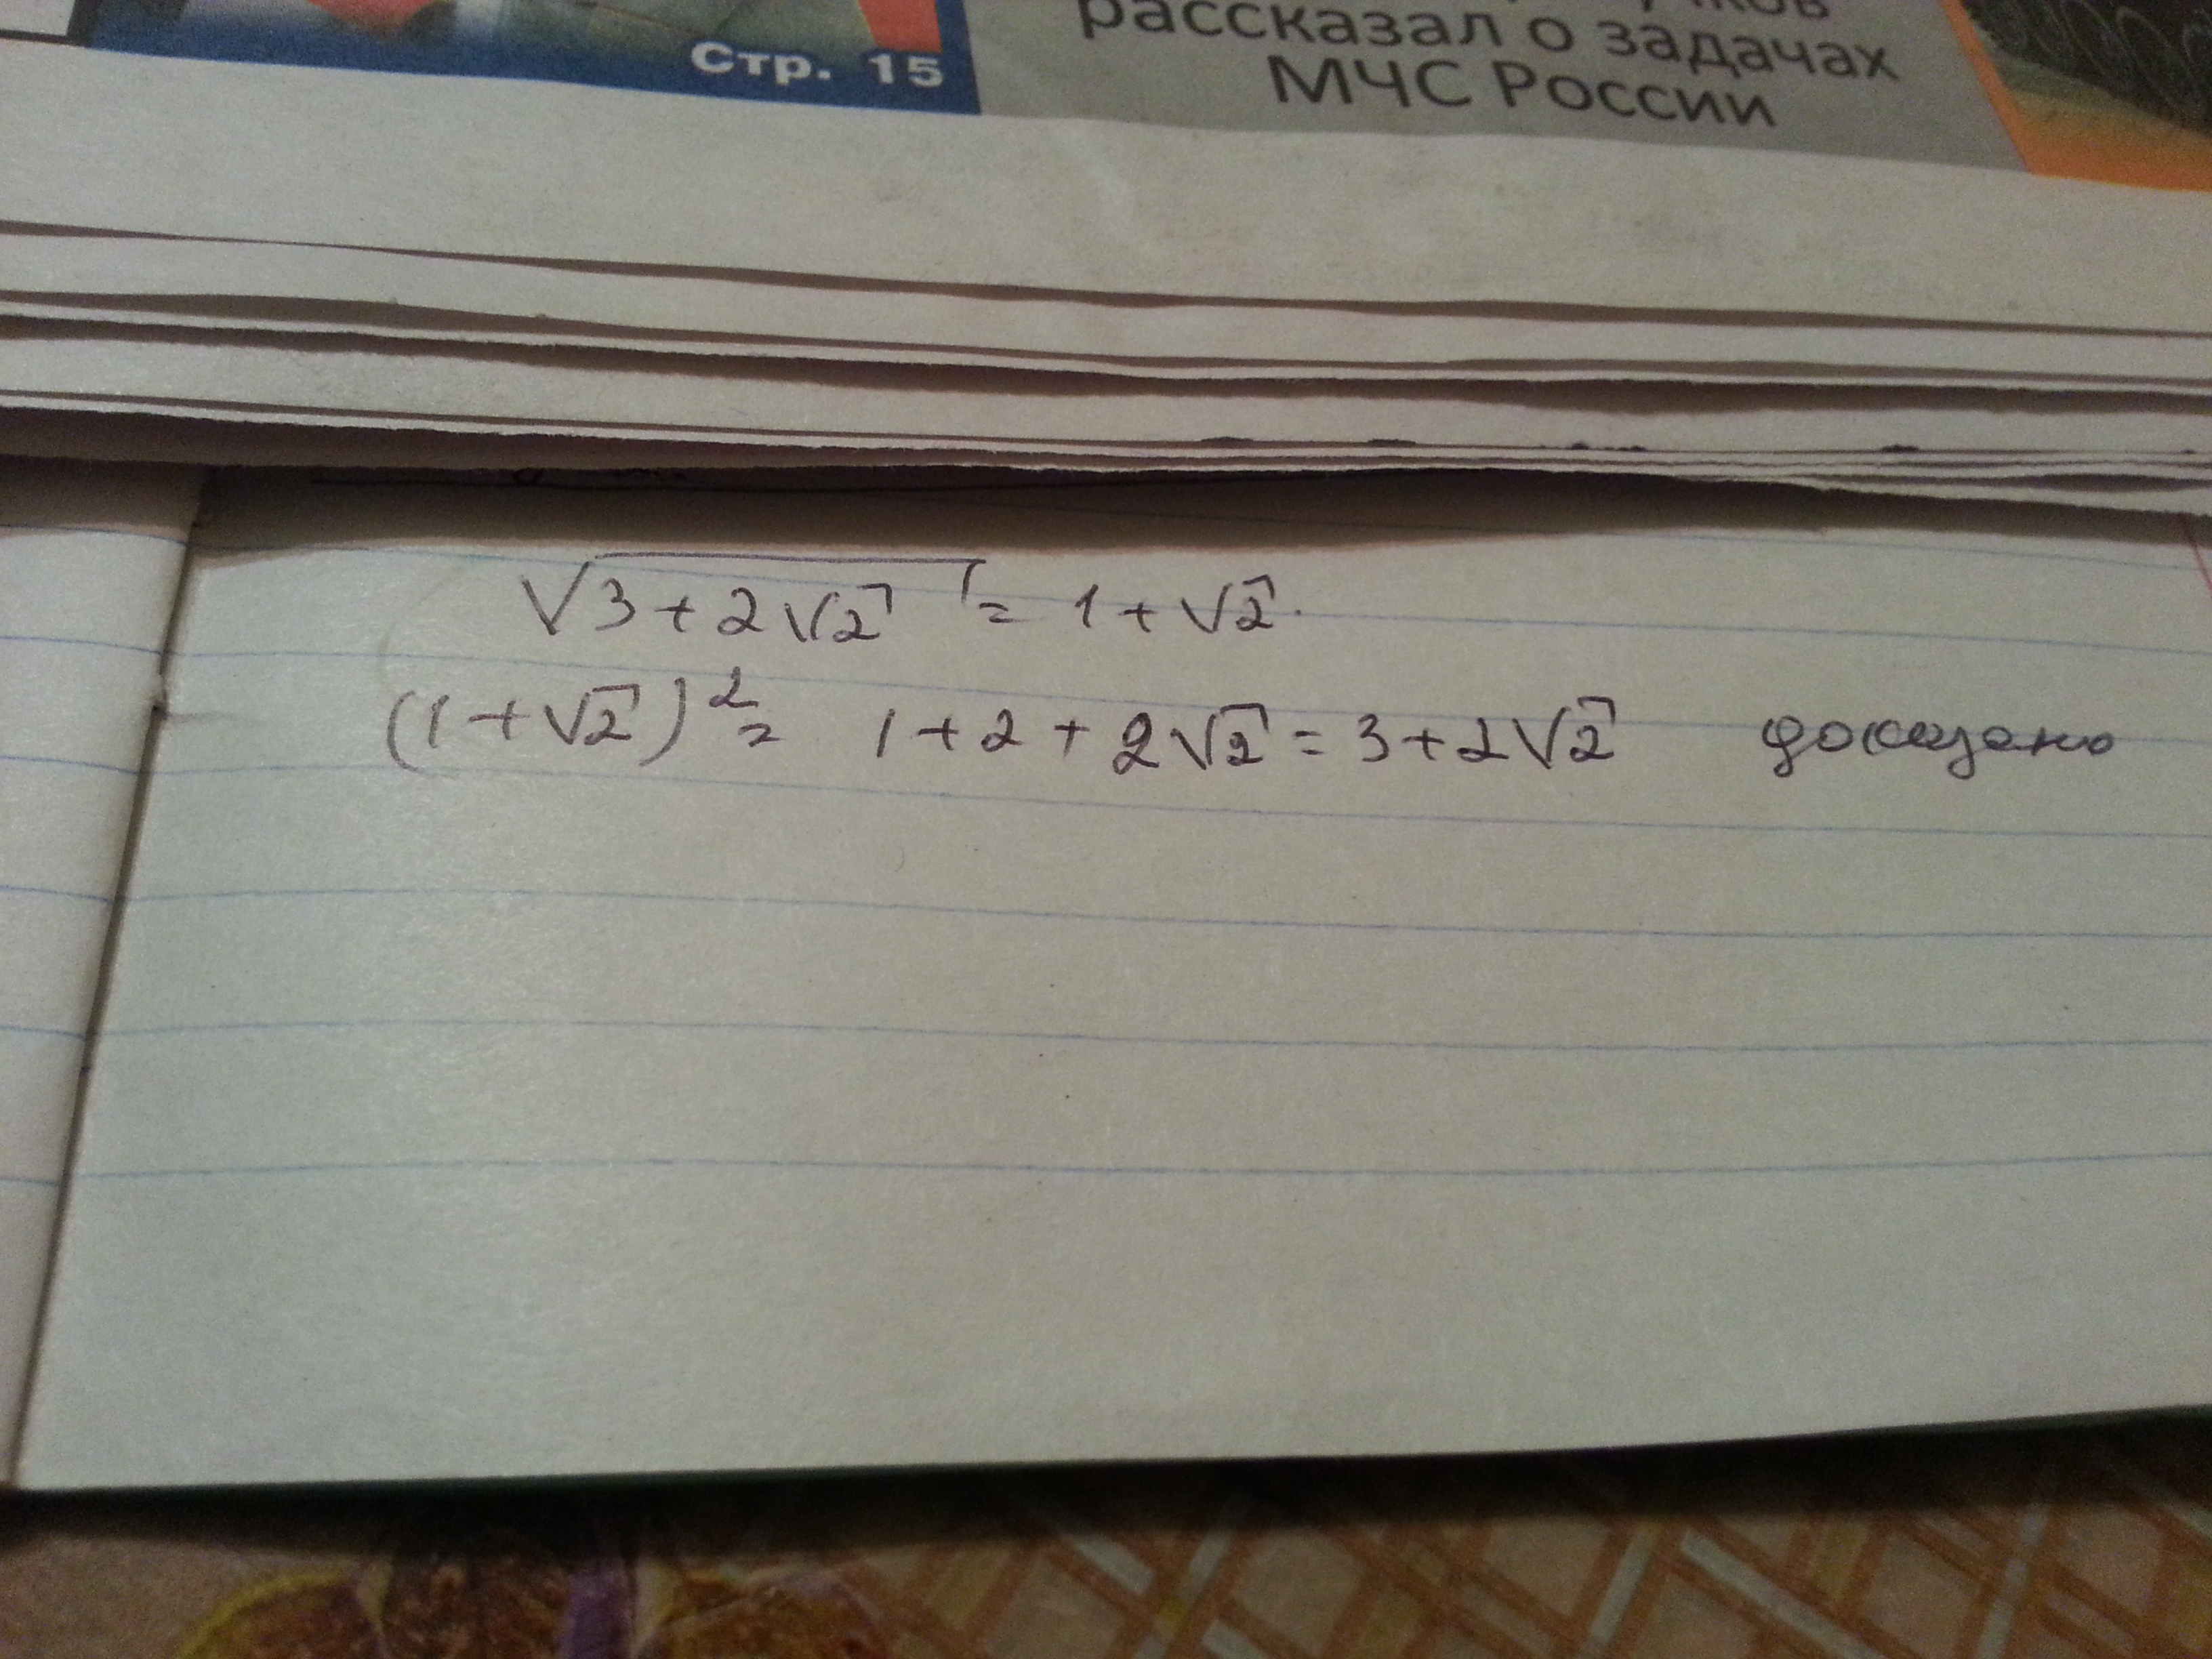 Стр. 15
рассказал о задачах
МЧС России
√3+2√2 = 1+√2.
(1+√2)² = 1+2+2√2 = 3+2√2 доказано